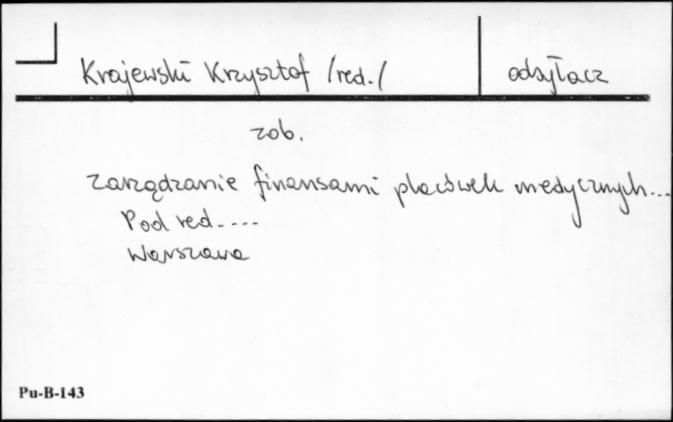 Krajewski Krzysztof /red./ odsyłacz
zob.
Zarządzanie finansami placówek medycznych...
Pod red. ....
Warszawa
Pu-B-143